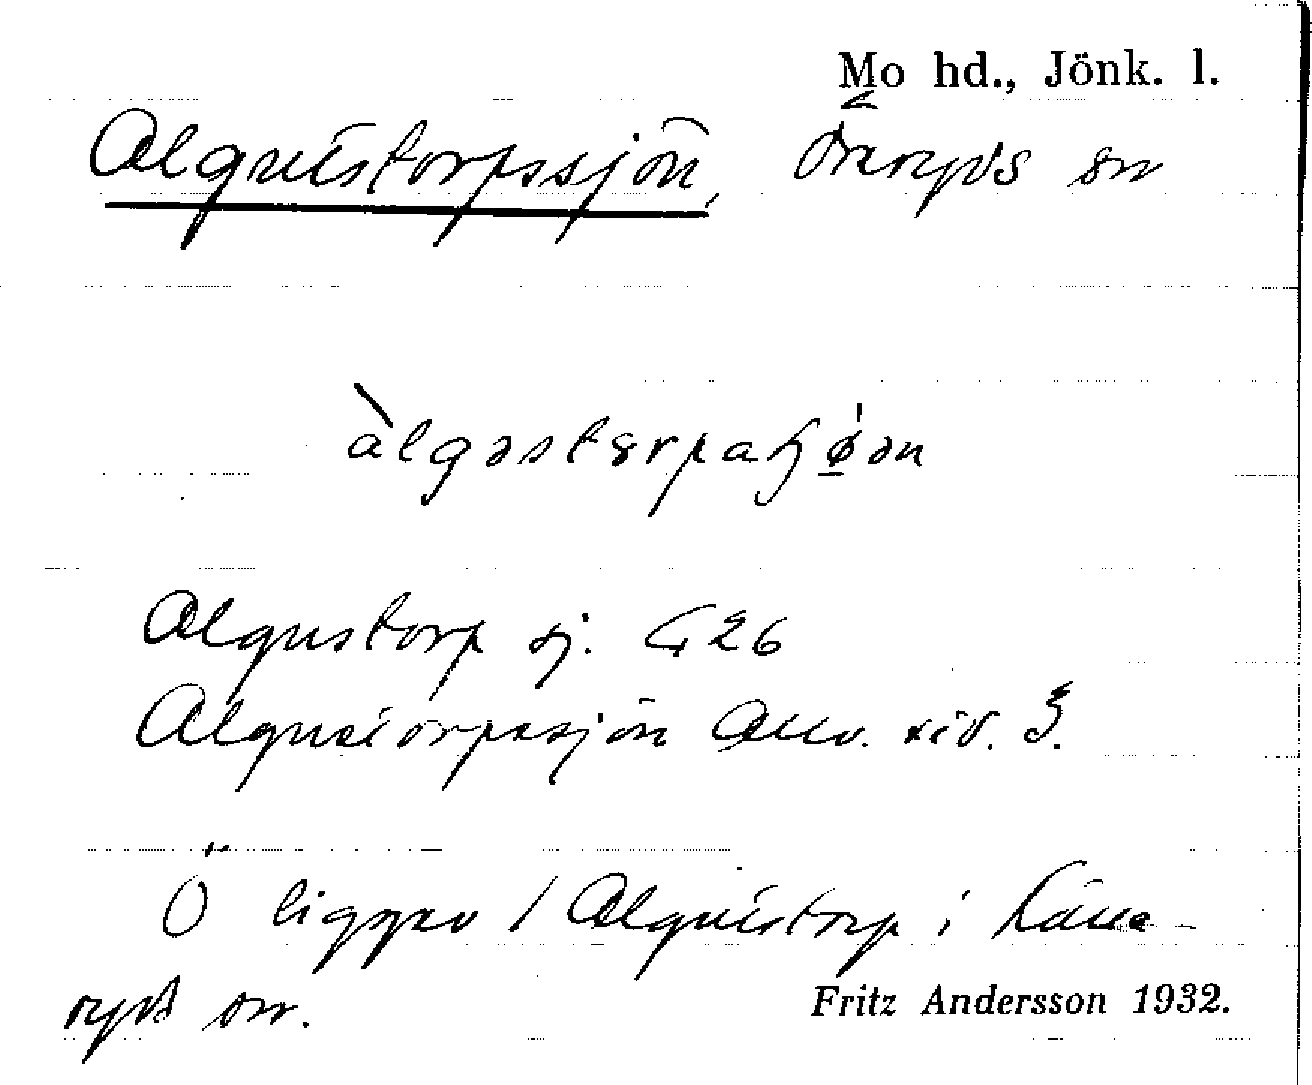 Mo hd., Jönk. l.
Algutstorpssjön, Öreryds sn
àlgəstərpaʃøən
Algustorp sj. G 26
Algustorpssjön Allv. sid. 3.
Ö ligger / Algutstorp i Källe-
ryds sn.
Fritz Andersson 1932.